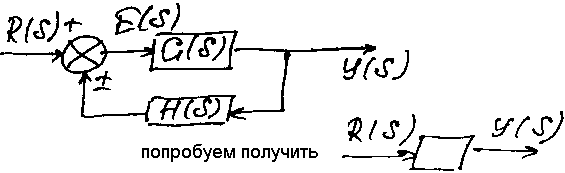 R(S) + E(S) G(S) Y(S)
± H(S)
попробуем получить R(S) Y(S)